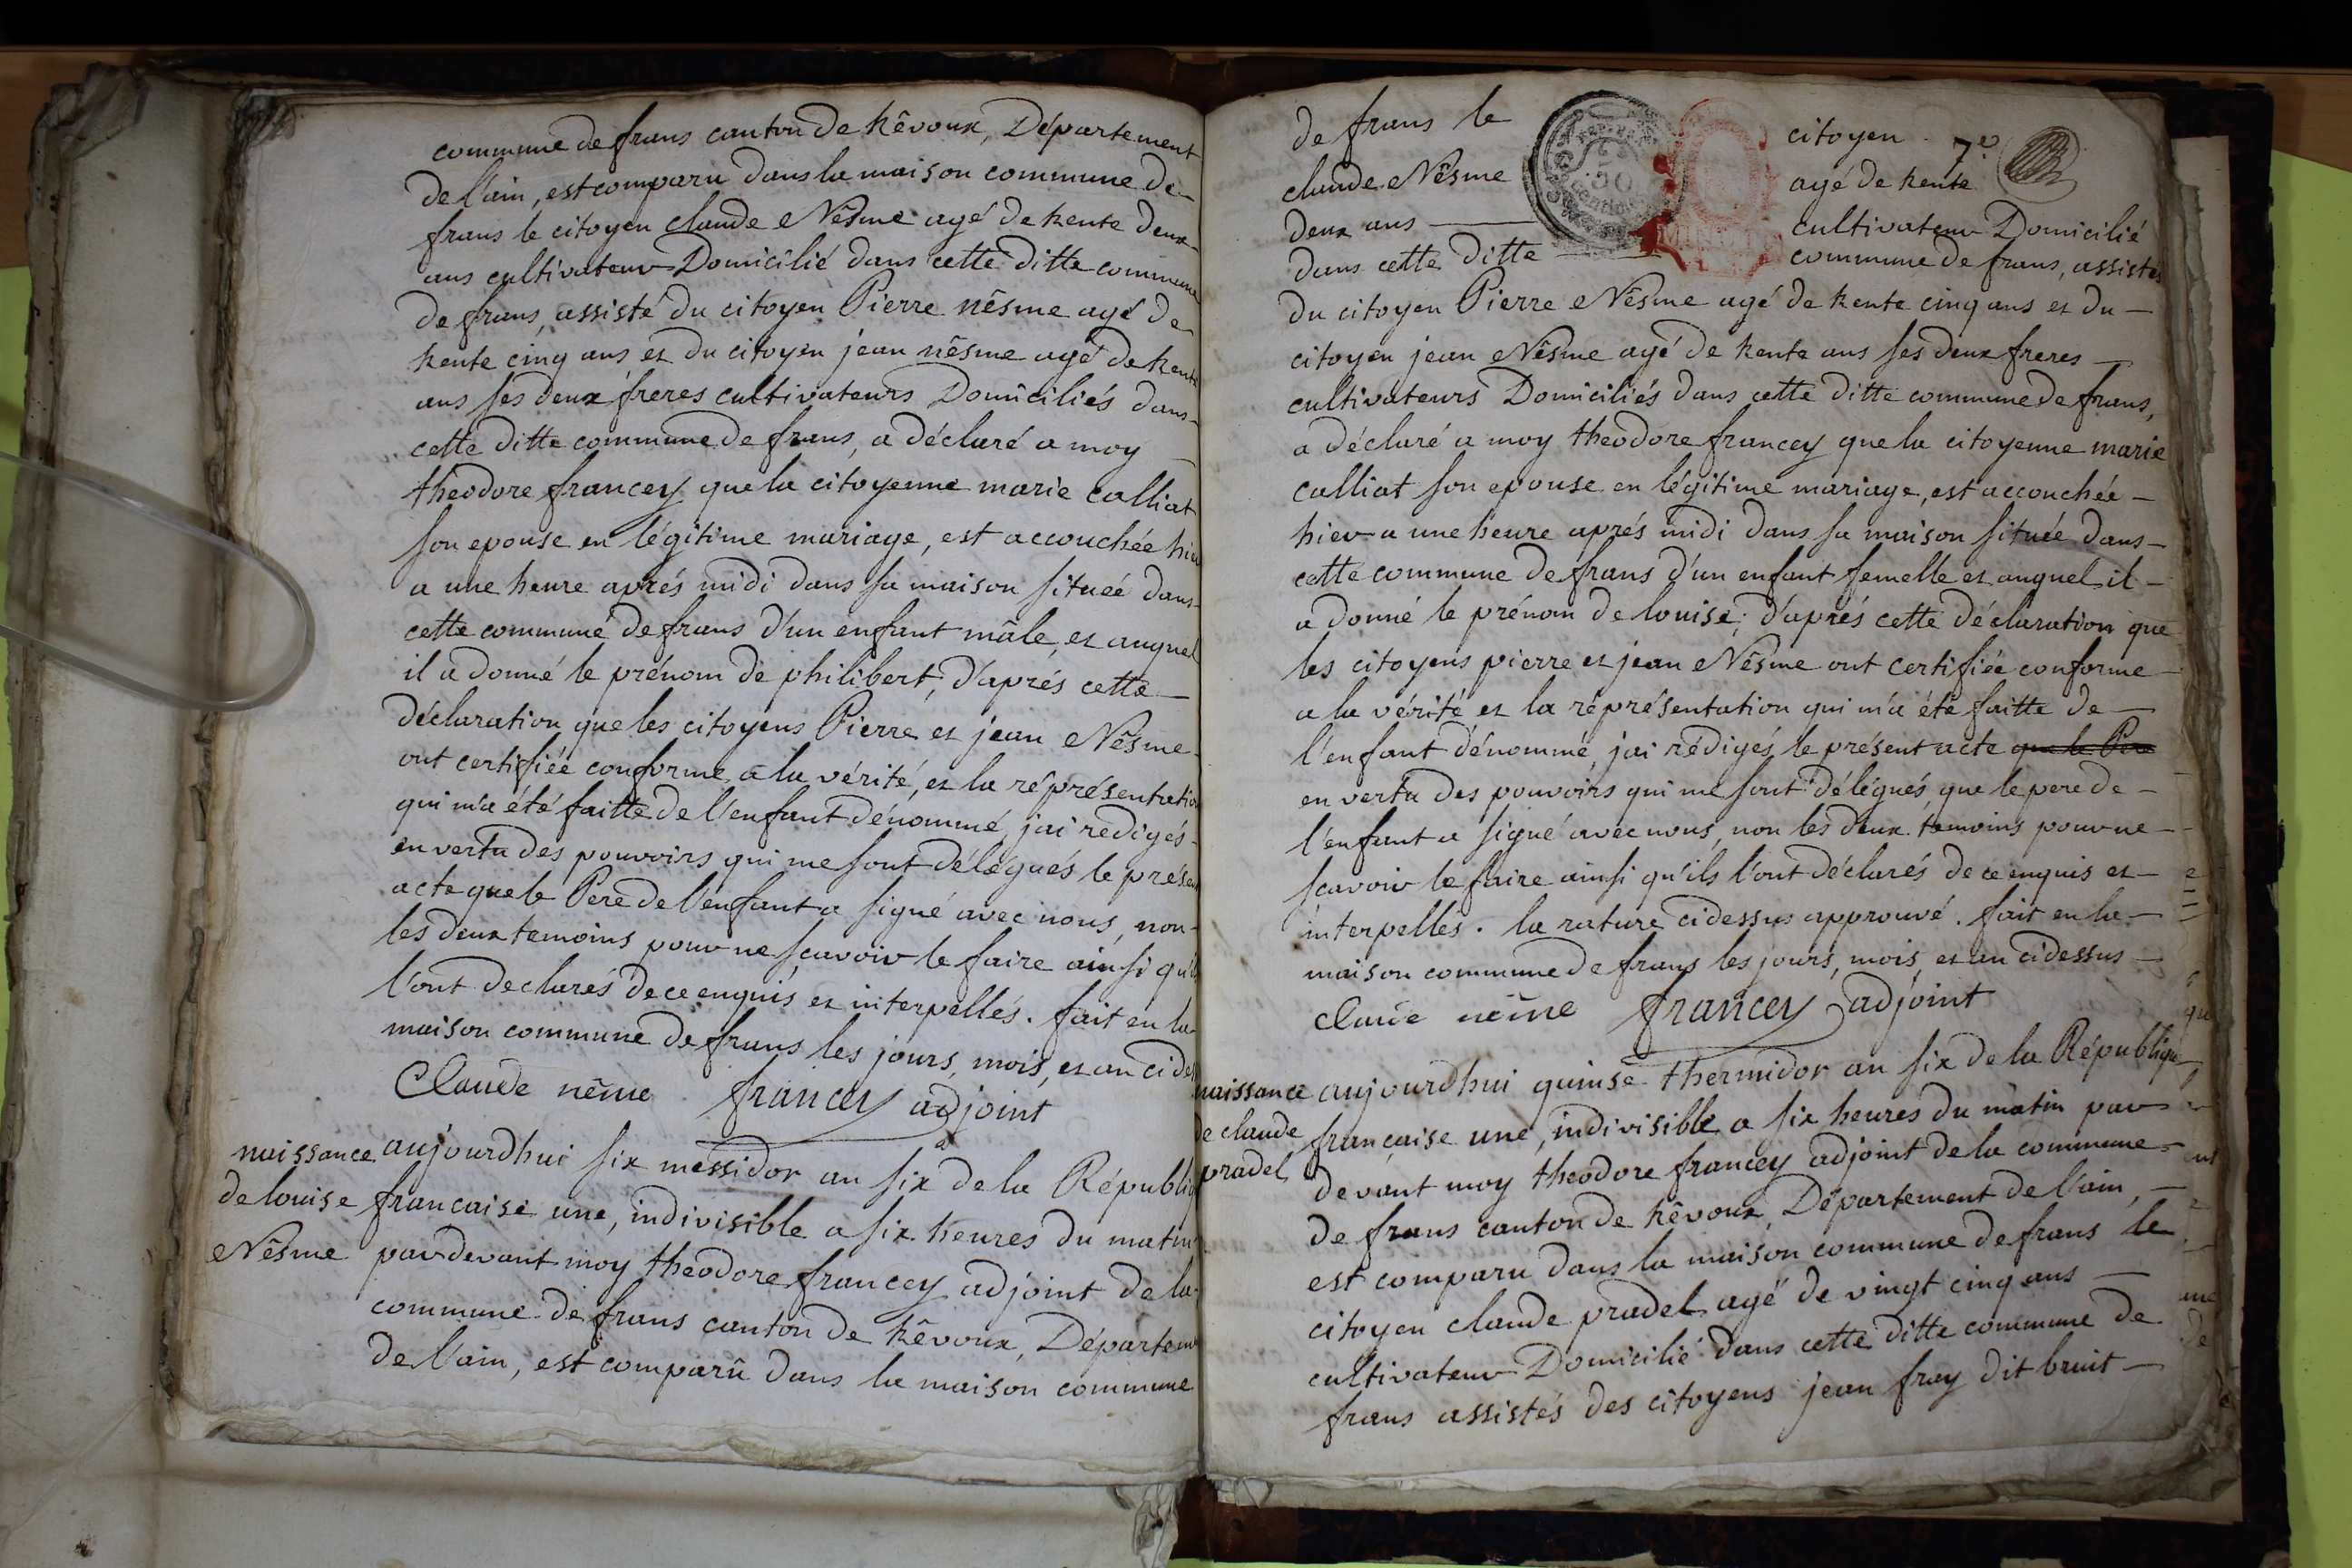 commune de frans canton de trêvoux, Département
de l'ain, est comparu dans la maison commune de
frans le citoyen claude Nêsme agé de trente deux
ans cultivateur Domicilié dans cette ditte commune
de frans, assisté du citoyen Pierre nêsme agé de
trente cinq ans, et du citoyen jean nêsme agé de trente
ans ses deux freres cultivateurs Domiciliés dans
cette ditte commune de frans, a déclaré a moy
théodore francey que la citoyenne marie calliat
son epouse en légitime mariage, est accouchée hier
a une heure aprés midi dans sa maison située dans
cette commune de frans d'un enfant mâle, et auquel
il a donné le prénom de philibert, d'aprés cette
déclaration que les citoyens Pierre et jean Nêsme
ont certifiée conforme a la vérité, et la réprésentation
qui m'a été faitte de l'enfant dénommé, j'ai redigés
en vertu des pouvoirs qui me sont délégués le présent
acte que le Pere de l'enfant a signé avec nous, non
les deux temoins pour ne scavoir le faire ainsi qu'ils
l'ont declarés de ce enquis et interpellés. fait en la
maison commune de frans les jours, mois, et an cides
Claude nême francey adjoint
naissance aujourdhui six messidor an six de la Républiq
de louise francaise une, indivisible a six heures du matin
Nêsme pardevant moy théodore francey adjoint de la
commune de frans canton de trêvoux, Départem
de l'ain, est comparû dans la maison commune
de frans le citoyen 7e
claude Nêsme agé de trente
deux ans cultivateur Domicilié
dans cette ditte commune de frans, assistés
du citoyen Pierre Nêsme agé de trente cinq ans et du
citoyen jean Nêsme agé de trente ans ses deux freres
cultivateurs Domiciliés dans cette ditte commune de frans,
a déclaré a moy théodore francey que la citoyenne marie
calliat son epouse en légitime mariage, est accouchée
hier a une heure aprés midi dans sa maison située dans
cette commune de frans d'un enfant femelle et auquel il
a donné le prénom de louise, d'aprés cette déclaration que
les citoyens pierre et jean Nêsme ont certifiée conforme
a la vérité et la réprésentation qui m'a été faitte de
l'enfant dénommé, j'ai rédigés le présent acte que le Pere
en vertu des pouvoirs qui me sont délégués, que le pere de
l'enfant a signé avec nous, non les deux temoins pour ne
scavoir le faire ainsi qu'ils l'ont déclarés de ce enquis et
interpellés. la rature cidessus approuvé. fait en la
maison commune de frans les jours, mois, et an cidessus
Claude nême francey adjoint
naissance aujourdhui quinse thermidor an six de la République
de claude francaise une, indivisible a six heures du matin par
pradel devant moy théodore francey adjoint de la commune
de frans canton de trêvoux, Département de l'ain,
est comparu dans la maison commune de frans le
citoyen claude pradel agé de vingt cinq ans
cultivateur Domicilié dans cette ditte commune de
frans assistés des citoyens jean fray dit bruit